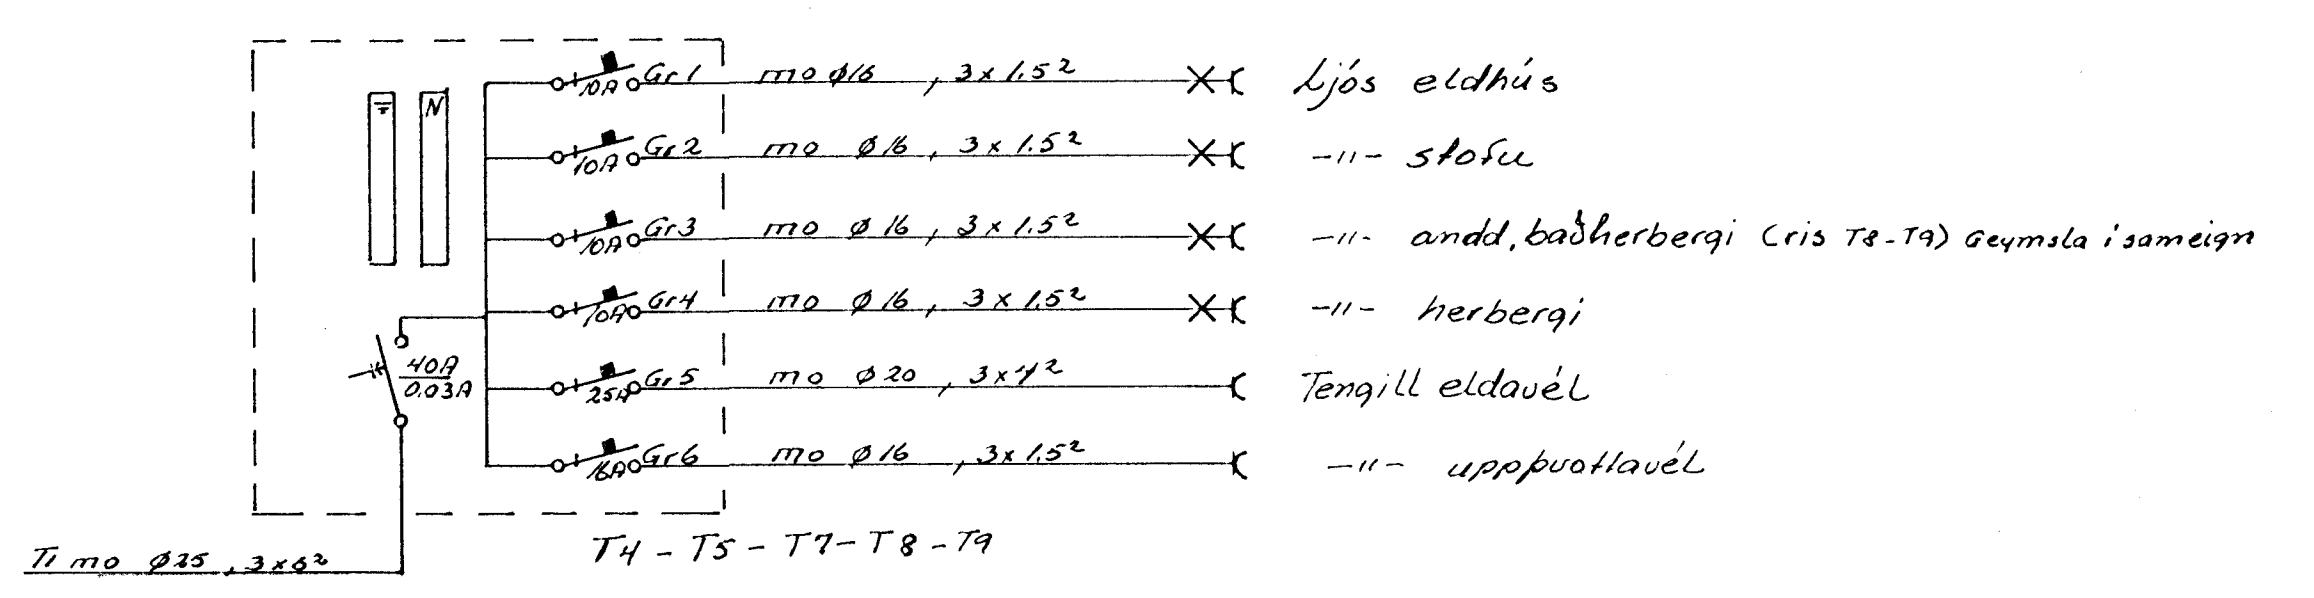 Gr1 mo ø16 , 3x1.5² Ljós eldhús
10A
N
Gr2 mo ø16 , 3x1.5² -"- stofu
10A
Gr3 mo ø16 , 3x1.5² -"- andd, baðherbergi (ris T8-T9) Geymsla í sameign
10A
Gr4 mo ø16 , 3x1.5² -"- herbergi
10A
40A
0.03A
Gr5 mo ø20 , 3x4² Tengill eldavél
25A
Gr6 mo ø16 , 3x1.5² -"- uppþvottavél
16A
T4 - T5 - T7 - T8 - T9
mo ø25 , 3x6²